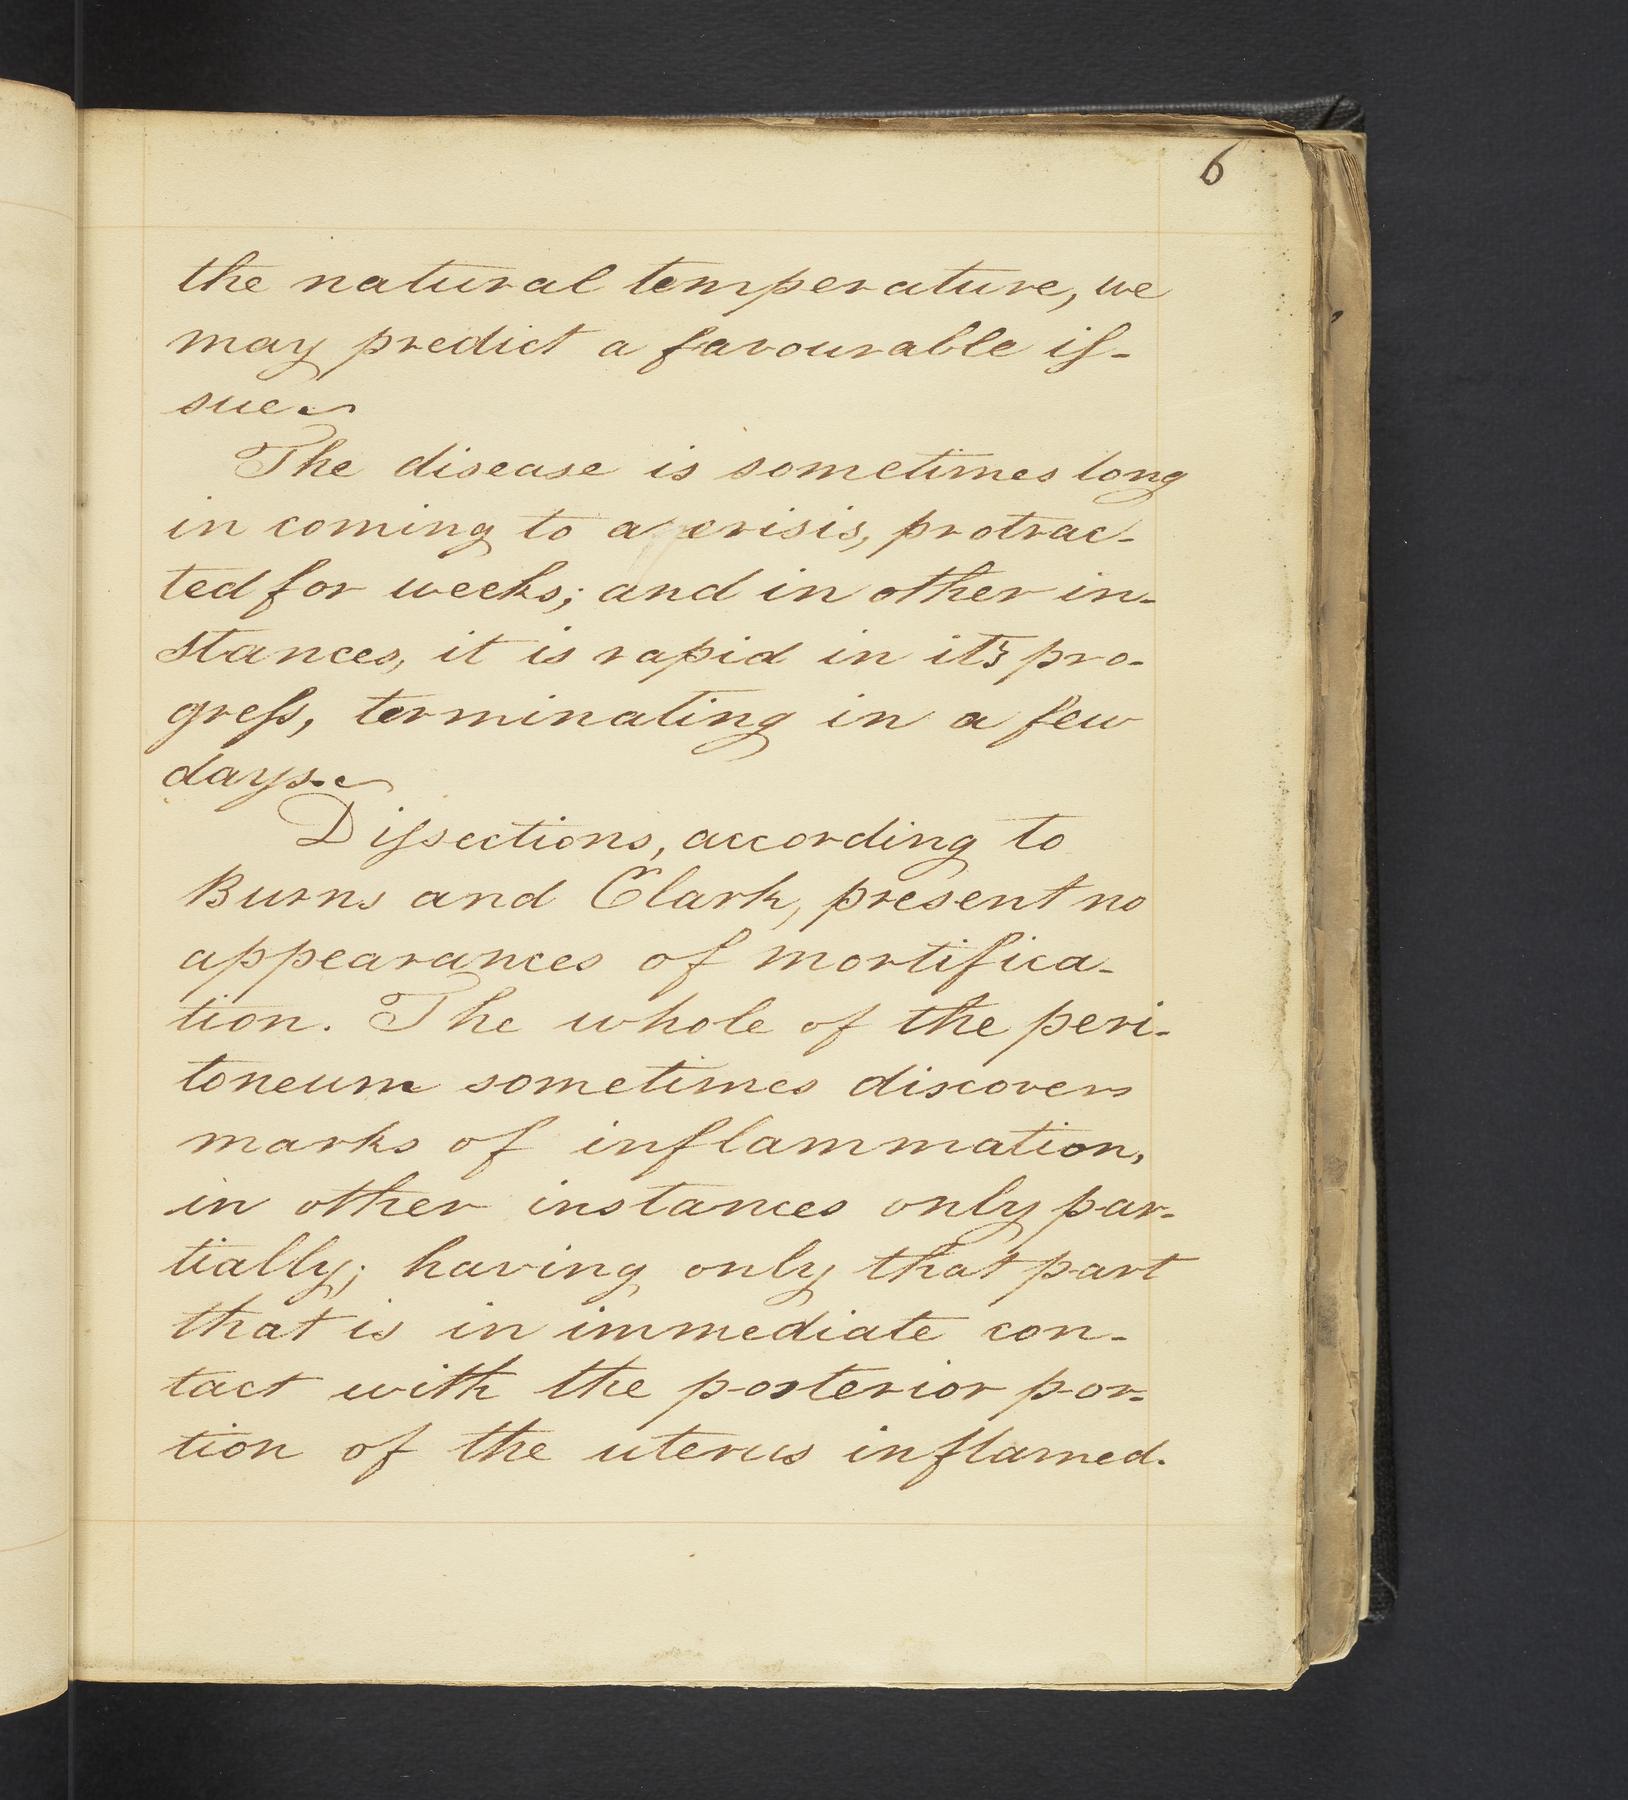 6
the natural temperature, we
may predict a favourable iſ-
sue.
The disease is sometimes long
in coming to a crisis, protrac-
ted for weeks; and in other in-
stances, it is rapid in its pro-
greſs, terminating in a few
days.
Diſsections, according to
Burns and Clark, present no
appearances of mortifica-
tion. The whole of the peri-
toneum sometimes discovers
marks of inflammation,
in other instances only par-
tially; having only that part
that is in immediate con-
tact with the posterior por-
tion of the uterus inflamed.